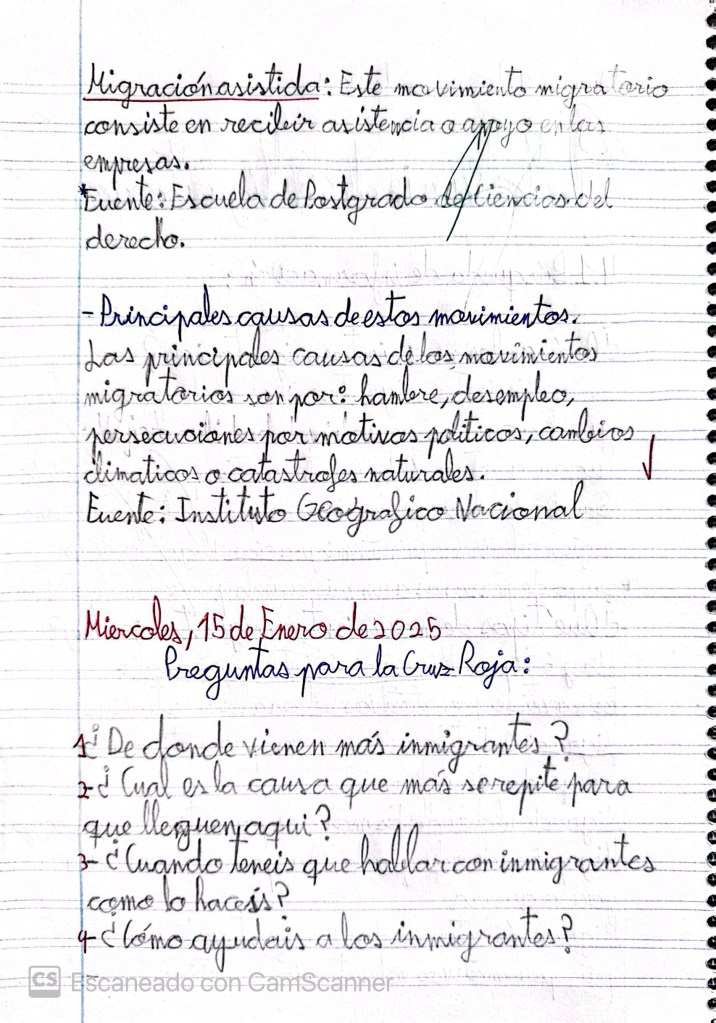 Migración asistida: Este movimiento migratorio
consiste en recibir asistencia o apoyo en las
empresas.
*Fuente: Escuela de Postgrado de Ciencias del
derecho.
- Principales causas de estos movimientos.
Las principales causas de los movimientos
migratorios son por: hambre, desempleo,
persecuciones por motivos politicos, cambios
climaticos o catastrofes naturales.
Fuente: Instituto Geografico Nacional
Miercoles, 15 de Enero de 2025
Preguntas para la Cruz Roja:
1¿ De donde vienen más inmigrantes?
2-¿ Cual es la causa que más se repite para
que lleguen aqui?
3-¿Cuando teneis que hablar con inmigrantes
como lo haceis?
4-¿Cómo ayudais a los inmigrantes?
CS Escaneado con CamScanner